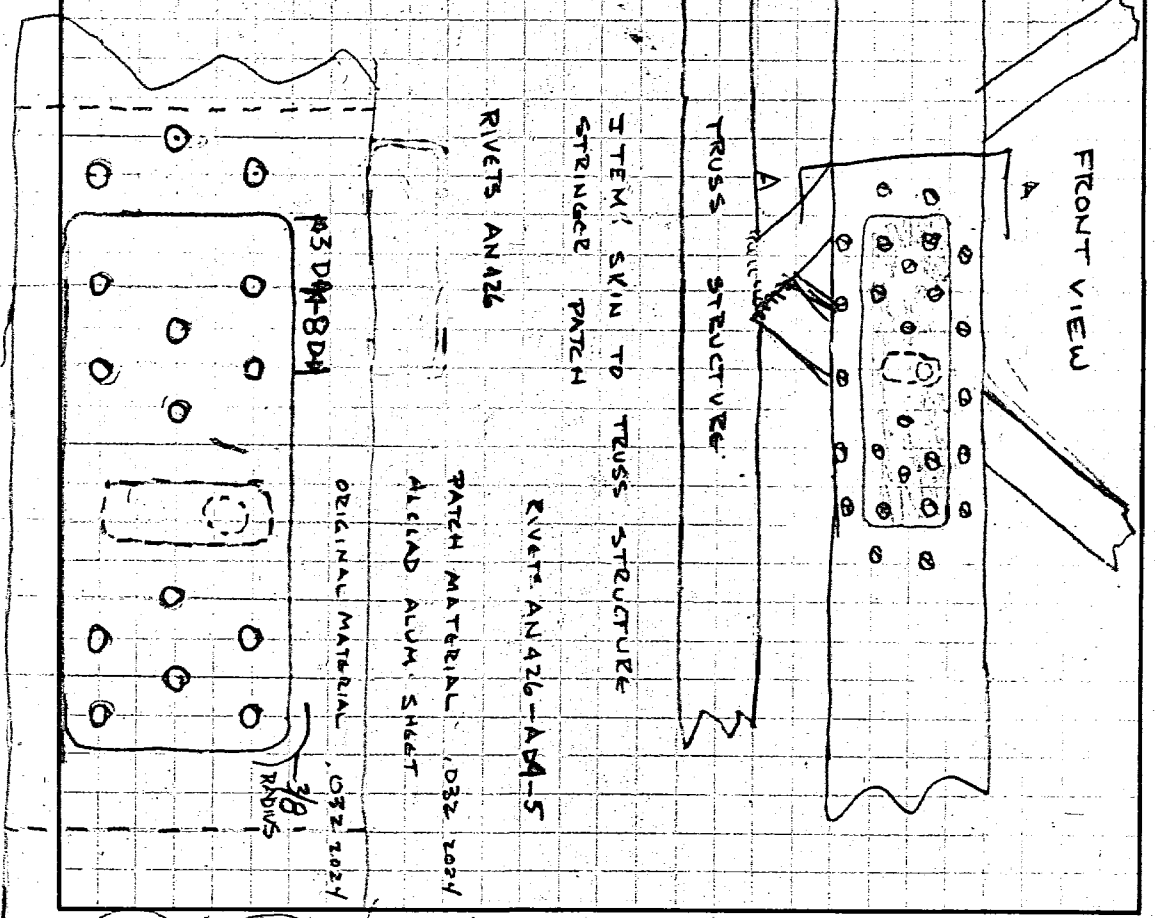 FRONT VIEW
A
A
TRUSS STRUCTURE
ITEM: SKIN TO TRUSS STRUCTURE
STRINGER PATCH
RIVETS AN426-AD4-5
RIVETS AN426
PATCH MATERIAL .032 2024
ALCLAD ALUM. SHEET
ORIGINAL MATERIAL .032 2024
3/8
RADIUS